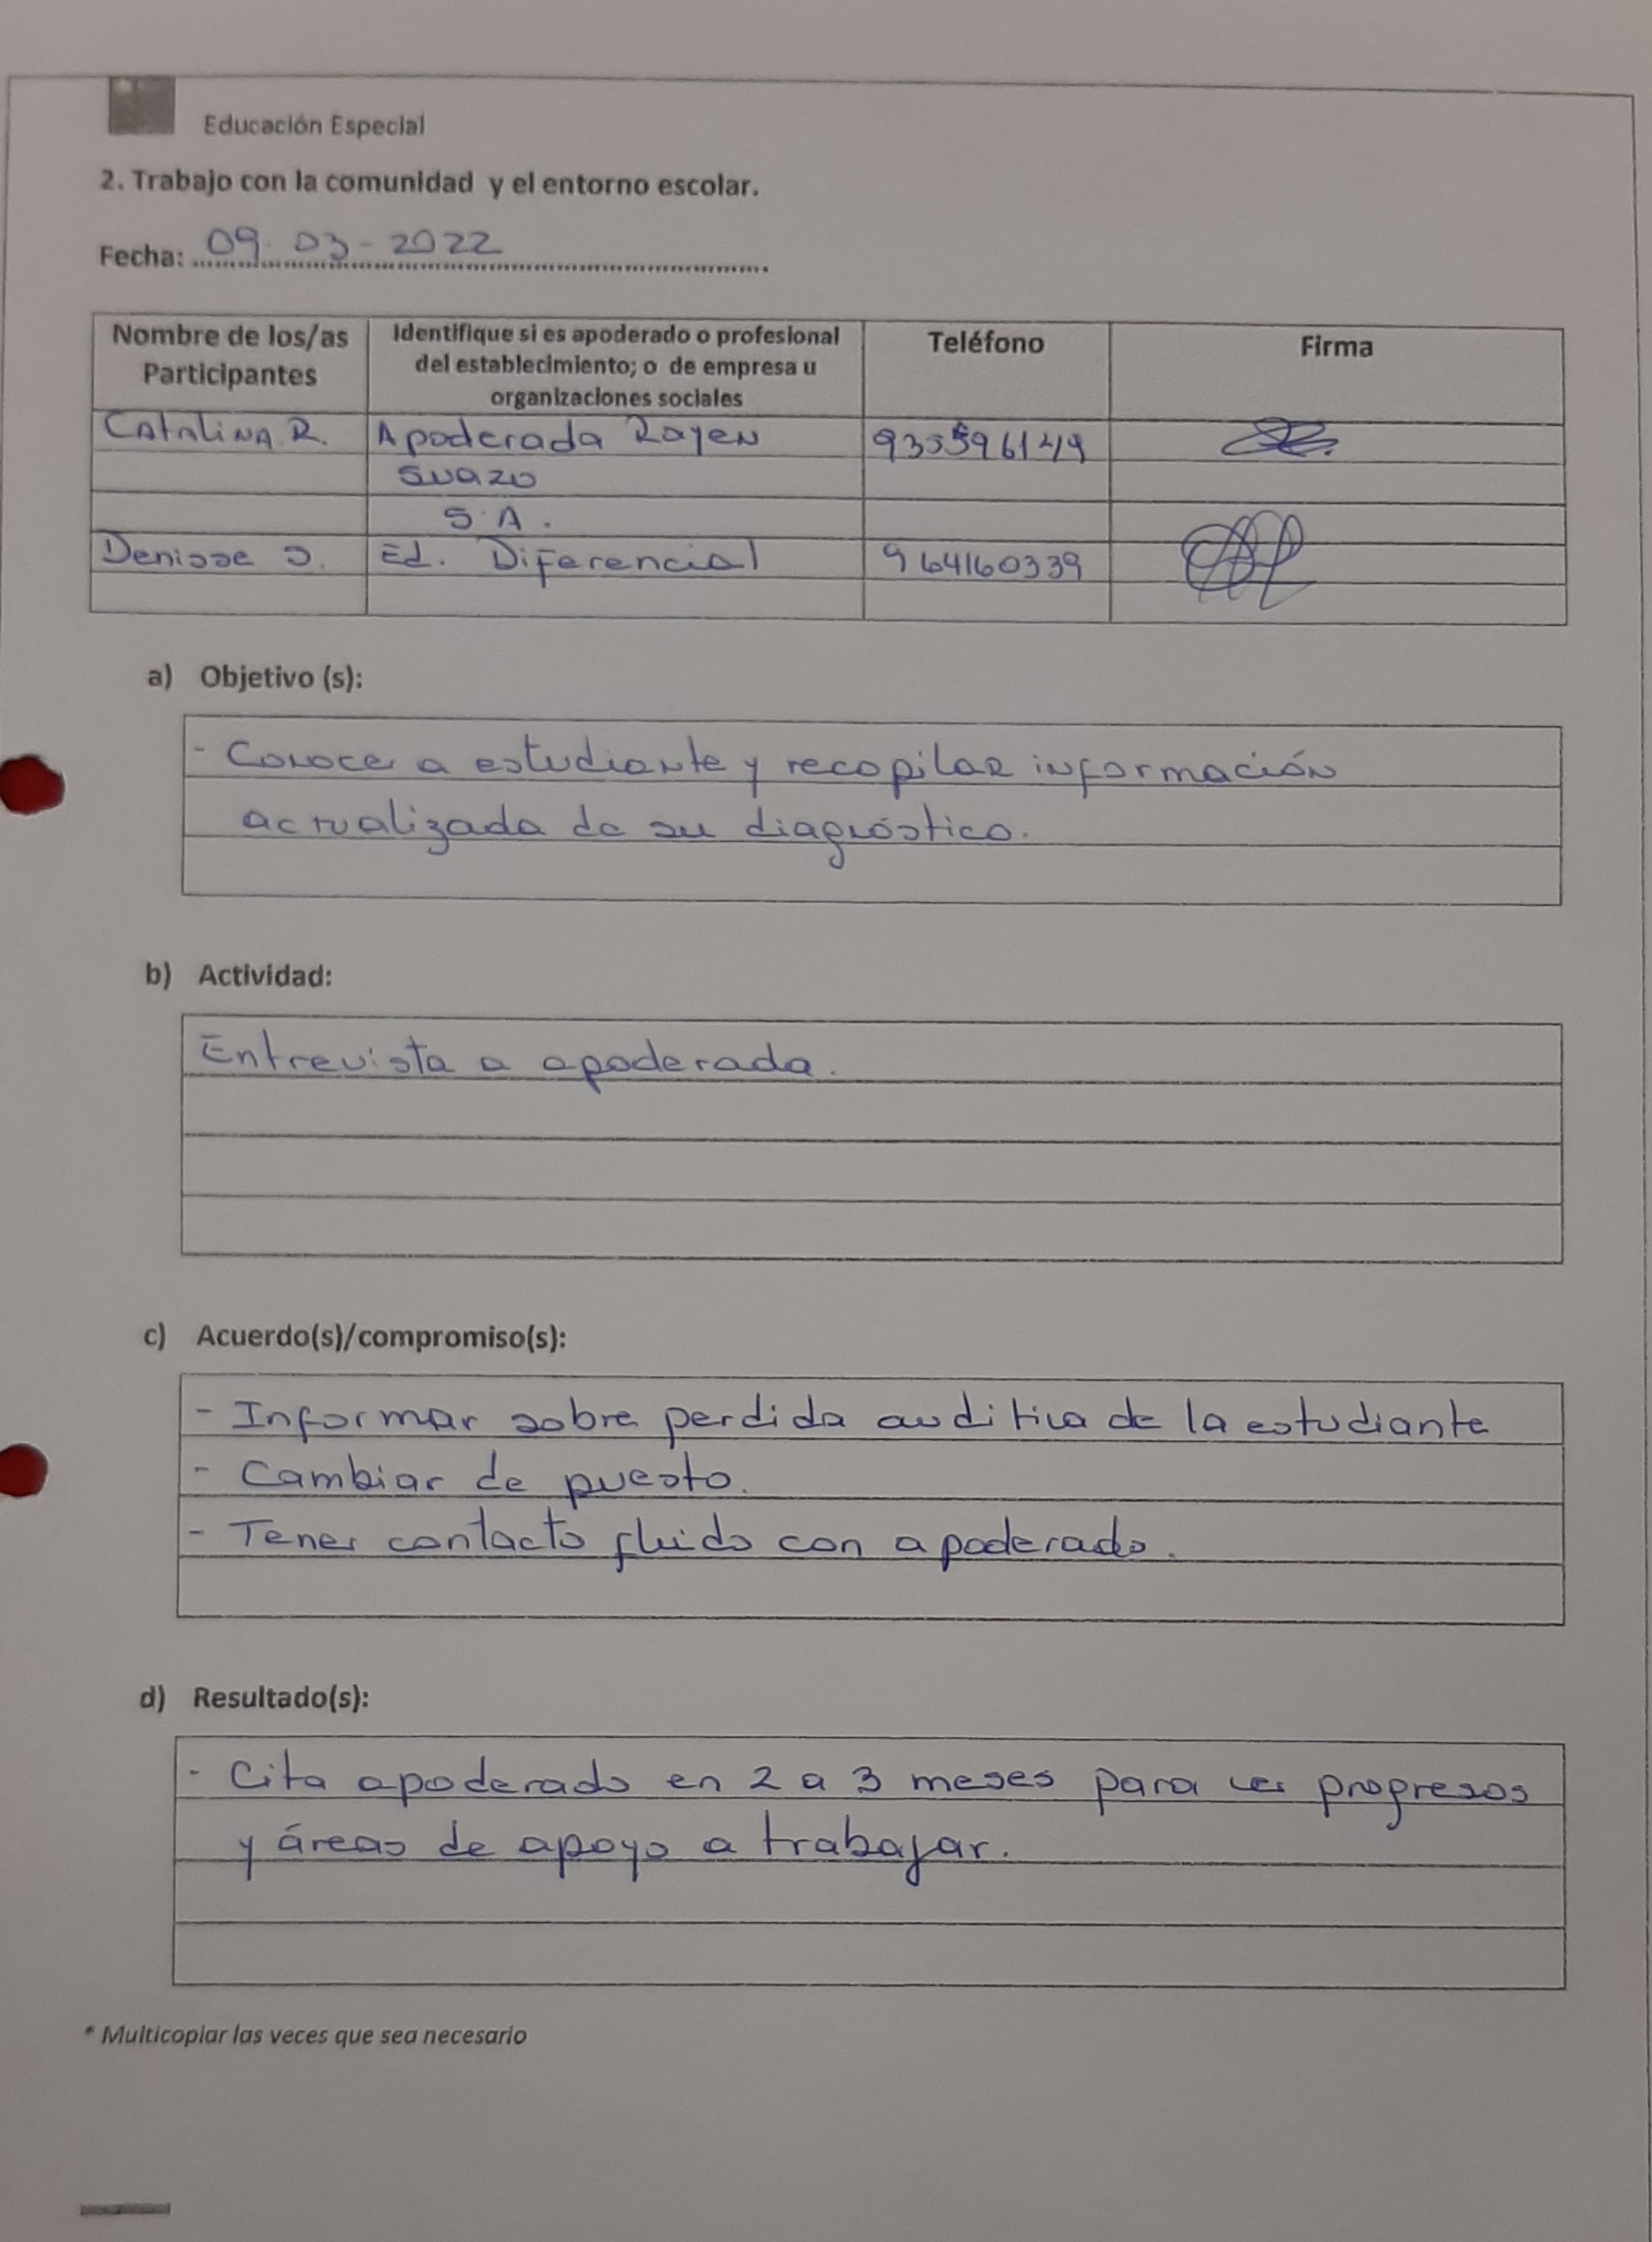 Educación Especial
2. Trabajo con la comunidad y el entorno escolar.
Fecha: 09-03-2022
Nombre de los/as Participantes
Identifique si es apoderado o profesional del establecimiento; o de empresa u organizaciones sociales
Teléfono
Firma
Catalina R. Apoderada Rayen
Suazo
S.A.
Denisse S. Ed. Diferencial 964160339
a) Objetivo (s):
- Conocer a estudiante y recopilar información
actualizada de su diagnóstico.
b) Actividad:
Entrevista a apoderada.
c) Acuerdo(s)/compromiso(s):
- Informar sobre perdida auditiva de la estudiante
- Cambiar de puesto.
- Tener contacto fluido con apoderado.
d) Resultado(s):
- Cita apoderado en 2 a 3 meses para ver progresos
y áreas de apoyo a trabajar.
* Multicopiar las veces que sea necesario